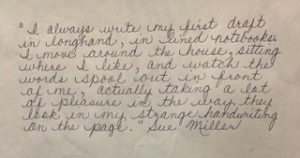 "I always write my first draft
in longhand, in lined notebooks.
I move around the house, sitting
where I like, and watch the
words spool out in front
of me, actually taking a lot
of pleasure in the way they
look in my strange handwriting
on the page." Sue Miller